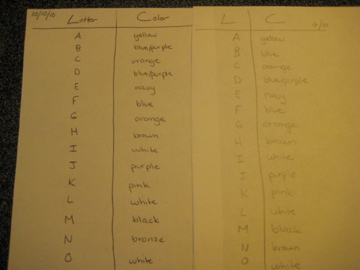 10/10/10 Letter Color
A yellow
B blue/purple
C orange
D blue/purple
E navy
F blue
G orange
H brown
I white
J purple
K pink
L white
M black
N bronze
O white
L C
A yellow
B blue
C orange
D blue/purple
E navy
F blue
G orange
H brown
I white
J purple
K pink
L white
M black
N brown
O white